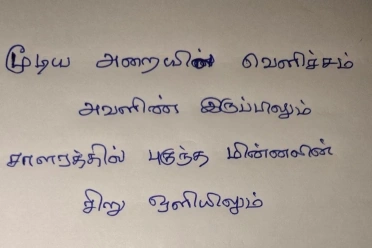 மூடிய அறையின் வெளிச்சம்
அவளிண் இருப்பிலும்
சாளரத்தில் புகுந்த மின்னலின்
சிறு ஒளியிலும்